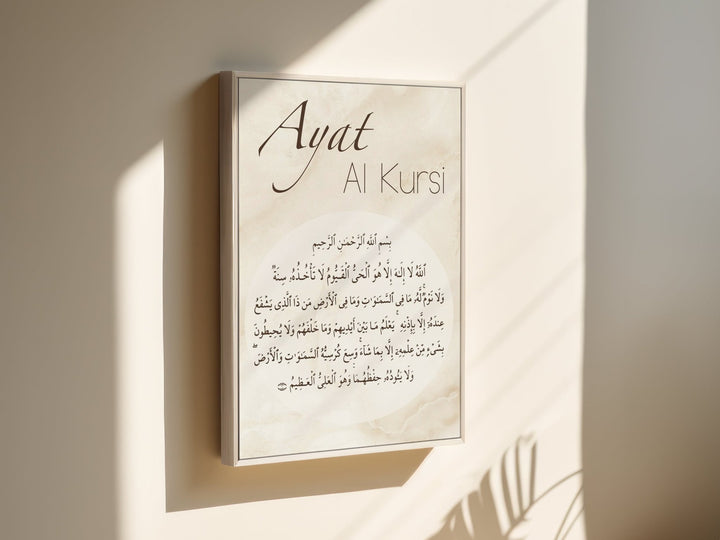 Ayat
Al Kursi
بِسْمِ ٱللَّهِ ٱلرَّحْمَٰنِ ٱلرَّحِيمِ
ٱللَّهُ لَا إِلَٰهَ إِلَّا هُوَ ٱلْحَىُّ ٱلْقَيُّومُ لَا تَأْخُذُهُۥ سِنَةٌ
وَلَا نَوْمٌ لَّهُۥ مَا فِى ٱلسَّمَٰوَٰتِ وَمَا فِى ٱلْأَرْضِ مَن ذَا ٱلَّذِى يَشْفَعُ
عِندَهُۥٓ إِلَّا بِإِذْنِهِۦ ۚ يَعْلَمُ مَا بَيْنَ أَيْدِيهِمْ وَمَا خَلْفَهُمْ وَلَا يُحِيطُونَ
بِشَىْءٍ مِّنْ عِلْمِهِۦٓ إِلَّا بِمَا شَآءَ ۚ وَسِعَ كُرْسِيُّهُ ٱلسَّمَٰوَٰتِ وَٱلْأَرْضَ ۖ
وَلَا يَـُٔودُهُۥ حِفْظُهُمَا وَهُوَ ٱلْعَلِىُّ ٱلْعَظِيمُ